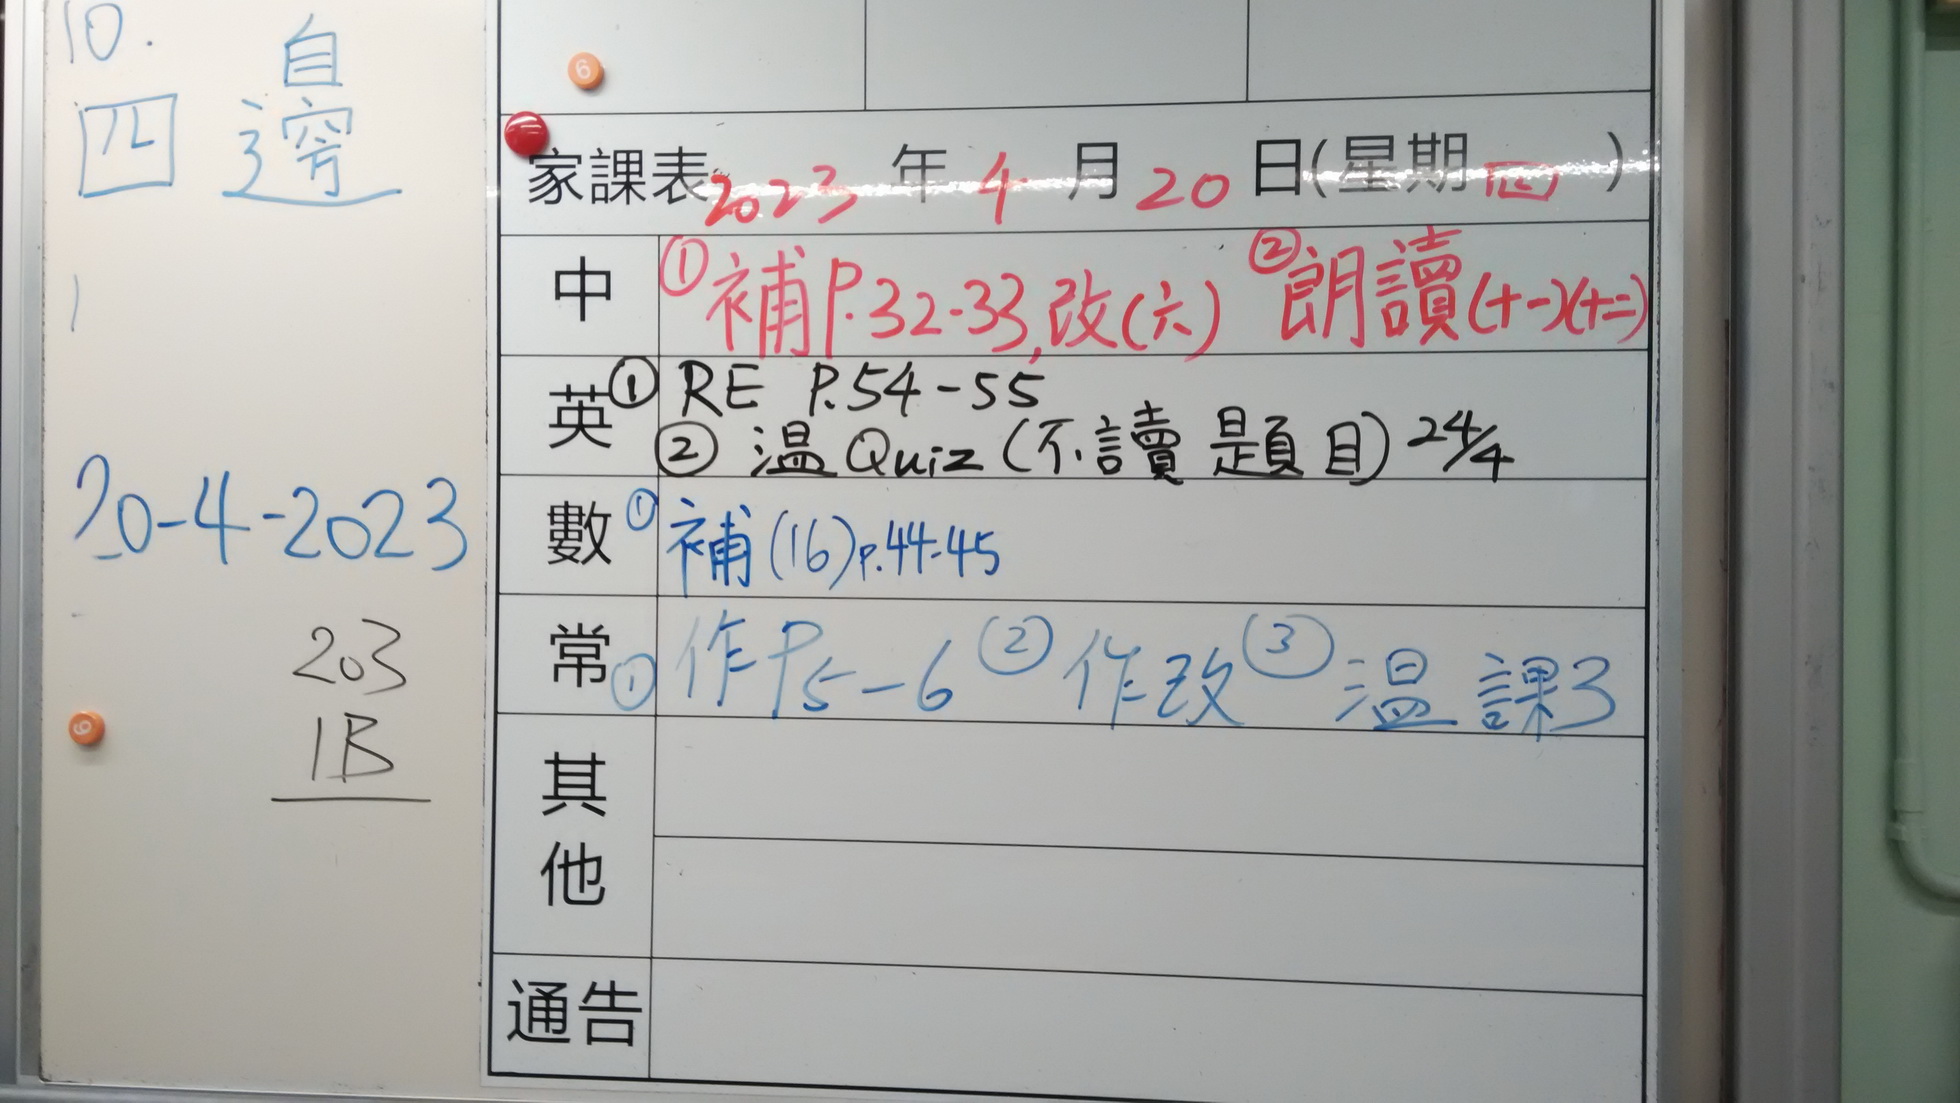 10.
四 邊
20-4-2023
203
1B
6
6
家課表 2023 年 4 月 20 日(星期 四 )
中 ①補P.32-33,改(六) ②朗讀(十一)(十二)
英 ① RE P.54-55
② 温 Quiz (不讀題目) 24/4
數 ① 補(16)p.44-45
常 ① 作P5-6 ② 作改 ③ 温課3
其他
通告